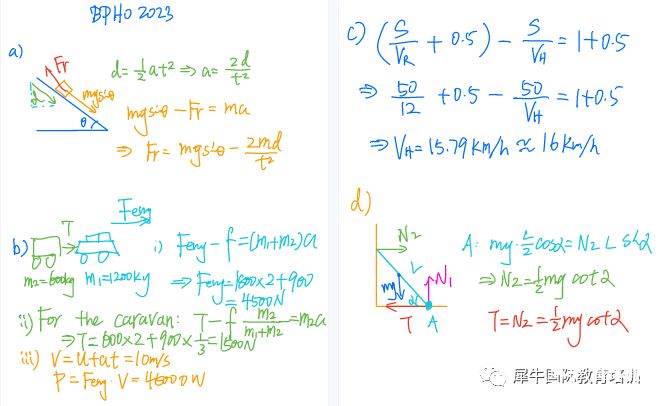 BPhO 2023
a)
Fr
mgsinθ
d
θ
d = ½at² ⇒ a = 2d/t²
mgsinθ - Fr = ma
⇒ Fr = mgsinθ - 2md/t²
b)
T
Feng
m₂=600kg m₁=1200kg
i) Feng - f = (m₁+m₂)a
⇒ Feng = 1800×2+900
= 4500N
ii) For the caravan: T - f m₂/(m₁+m₂) = m₂a
⇒ T = 600×2+900×1/3 = 1500N
iii) V = u+at = 10m/s
P = Feng·V = 45000W
c) (S/V_R + 0.5) - S/V_H = 1+0.5
⇒ 50/12 + 0.5 - 50/V_H = 1+0.5
⇒ V_H = 15.79km/h ≈ 16km/h
d)
N₂
L
mg
N₁
α
T
A
A: mg·L/2 cosα = N₂ L sinα
⇒ N₂ = ½mg cotα
T = N₂ = ½mg cotα
犀牛国际教育培训